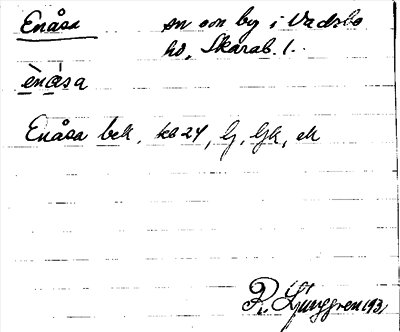 Enåsa sn och by i Vadsbo
hd, Skarab. l.
ènåsa
Enåsa bek, kb 24, lj, ljk, ek
R. Ljunggren 193